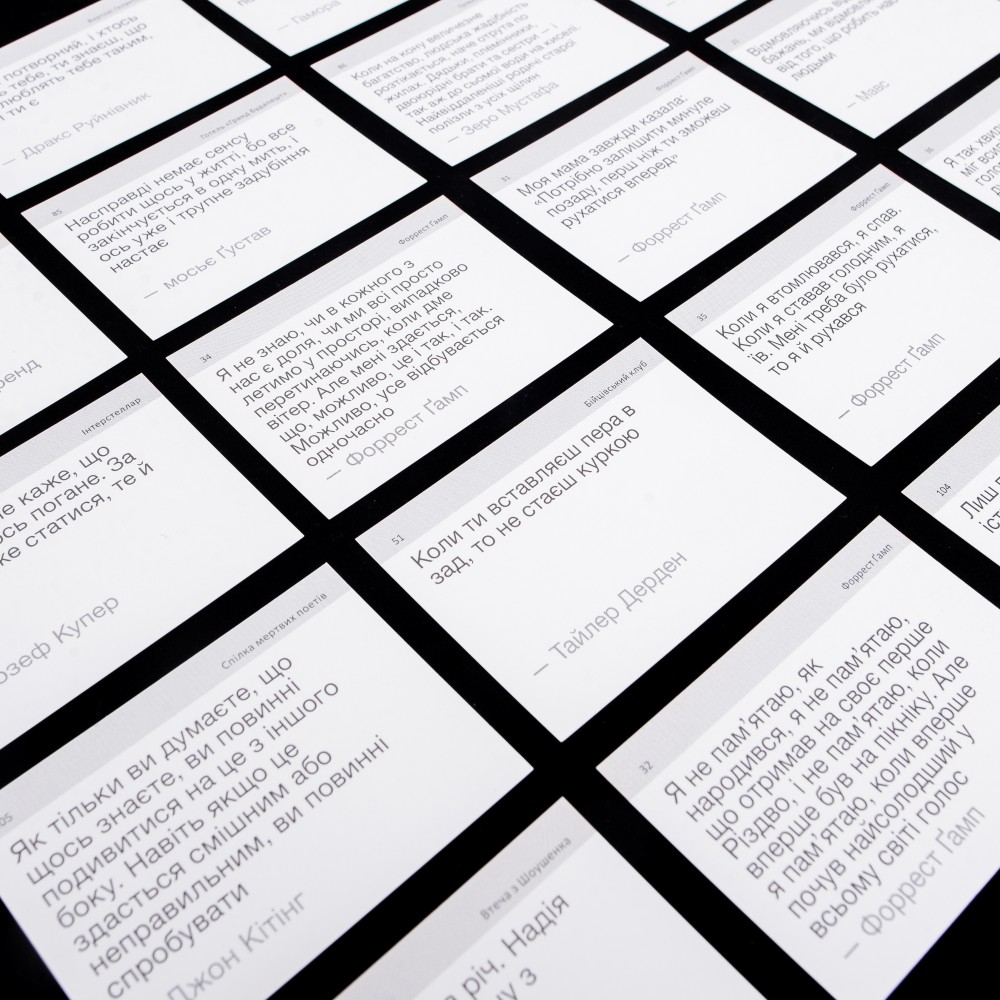 потворний, і хтось
тебе, ти знаєш, що
люблять тебе таким,
ти є
— Дракс Руйнівник
— Гамора
Коли на кону величезне
багатство, людська жадібність
розтікається, наче отрута по
жилах. Дядьки, племінники,
двоюрідні брати та сестри — і
так аж до сьомої води на киселі.
Найвіддаленіші родичі старої
полізли з усіх щілин
— Зеро Мустафа
Відмовляючись від
бажань, ми відмовляємось
від того, що робить нас
людьми
— Маес
Готель «Гранд Будапешт»
85
Насправді немає сенсу
робити щось у житті, бо все
закінчується в одну мить, і
ось уже і трупне задубіння
настає
— мосьє Ґустав
Форрест Ґамп
33
Моя мама завжди казала:
«Потрібно залишити минуле
позаду, перш ніж ти зможеш
рухатися вперед»
— Форрест Ґамп
36
Я так
міг
Форрест Ґамп
34
Я не знаю, чи в кожного з
нас є доля, чи ми всі просто
летимо у просторі, випадково
перетинаючись, коли дме
вітер. Але мені здається,
що, можливо, це і так, і так.
Можливо, усе відбувається
одночасно
— Форрест Ґамп
Форрест Ґамп
35
Коли я втомлювався, я спав.
Коли я ставав голодним, я
їв. Мені треба було рухатися,
то я й рухався
— Форрест Ґамп
Інтерстеллар
не каже, що
ось погане. За
же статися, те й
озеф Купер
Бійцівський клуб
51
Коли ти вставляєш пера в
зад, то не стаєш куркою
— Тайлер Дерден
104
Спілка мертвих поетів
05
Як тільки ви думаєте, що
щось знаєте, ви повинні
подивитися на це з іншого
боку. Навіть якщо це
здається смішним або
неправильним, ви повинні
спробувати
Джон Кітінг
Форрест Ґамп
32
Я не пам'ятаю, як
народився, я не пам'ятаю,
що отримав на своє перше
Різдво, і не пам'ятаю, коли
вперше був на пікніку. Але
я пам'ятаю, коли вперше
почув найсолодший у
всьому світі голос
— Форрест Ґамп
Втеча з Шоушенка
річ. Надія
у з